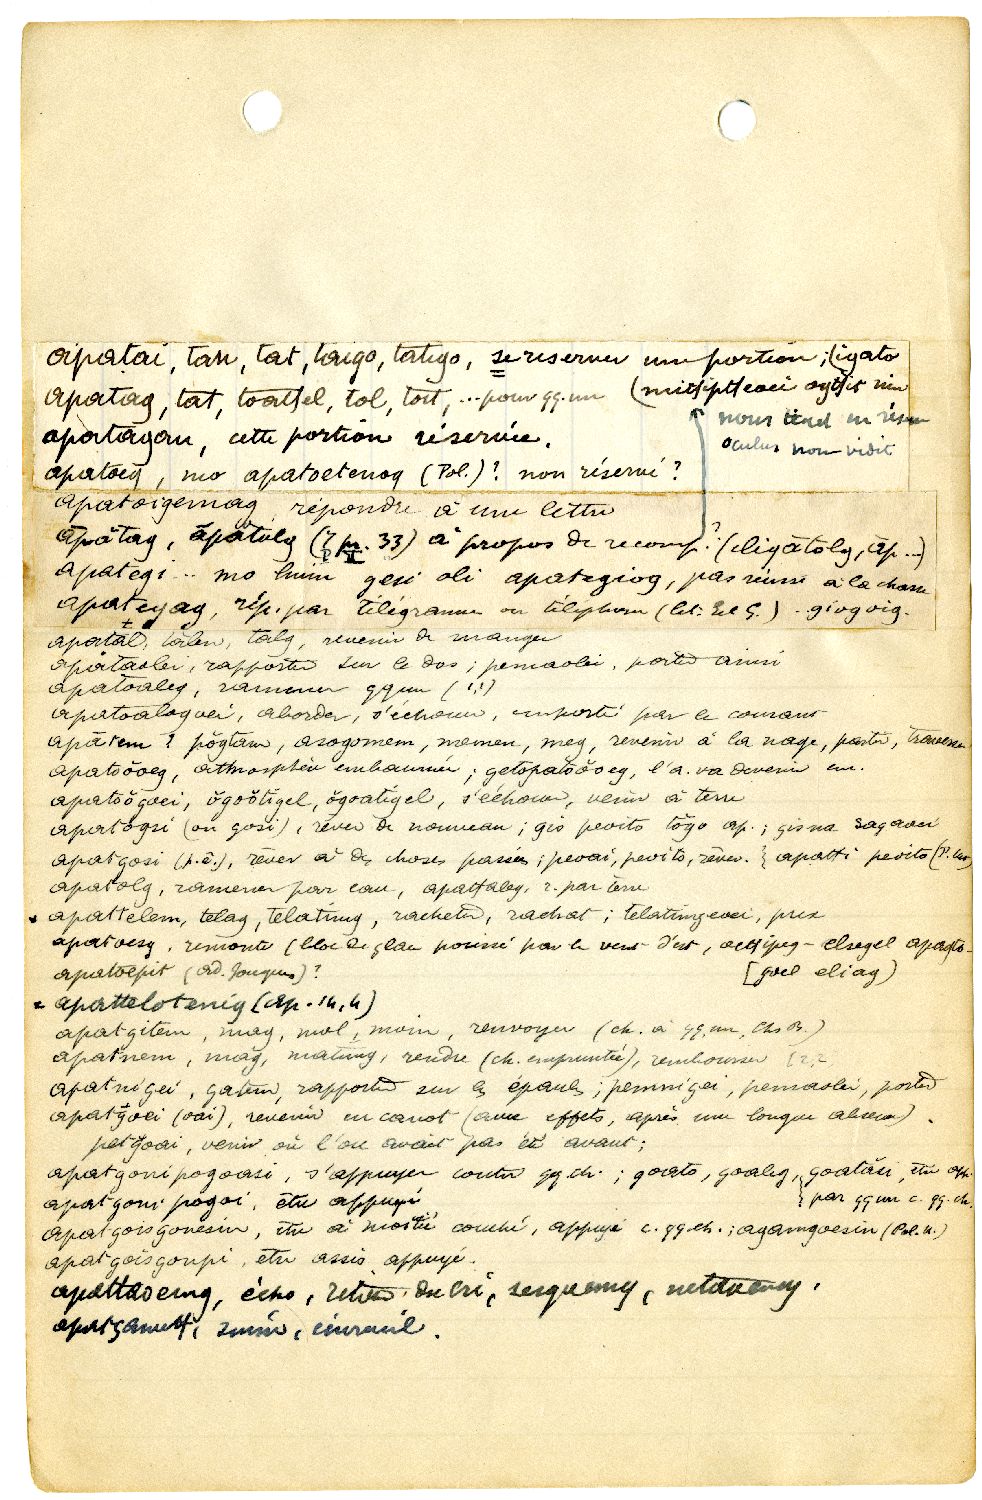 apatai, tan, tat, taigo, tatigo, se reserver une portion; (igato
apatag, tat, toatlel, tol, toit, ... pour qq.un (
nous tied en réserv
oculus non vidit
apatagan, cette portion réservée.
apatoeg, mo apatoetenog (Pol.)? non réservé?
apatoigemag répondre à une lettre
apătag, ăpătolg (? pr. 33) à propos de recomp.? (eligătolg, ăp...)
apategi... mo gesi oli apategiog, pas réussi à la chasse
apateyag, rép. par télégramme ou téléphone (let: ) ... giogoig.
apatal, talen, talg, revenir de manger
apătaolei, rapporter sur le dos; pemaolei, porter ainsi
apatoaleg, ramener qq.un (1,1)
apatoalogoei, aborder, s'échouer, emporté par le courant
apătem? pŏgtam, asogomem, nemen, meg, revenir à la nage, partir, traverser
apatŏŏoeg, athmosphère embaumée; getŏpatŏŏoeg, l'a. va devenir em.
apatŏgoei, ŏgoŏtigel, ŏgoatigel, s'échouer, venir à terre
apatŏgsi (ou gosi), rêver de nouveau; gis peoito tŏgo ap.; gisna sagaoei
apatgosi (p.ê.), rêver à des choses passées; peoai, peoito, rêver. } apatti peoito (P.
apatolg, ramener par eau, apattaleg, r. par terre
apattelem, telag, telatimg, racheter, rachat; telatimgeoei, prix
apatoesg, remonte (bloc de glace poussé par le vent d'est, - elsegel apaqto-
[goel eliag)
apatoepit (ad. )?
apattelotenig (Ap. 14, 4)
apatgitem, mag, mol, moin, renvoyer (ch. à qq.un, Chs B.)
apatnem, mag, matimg, rendre (ch. empruntée), rembourser
apatnigei, gatem, rapporter sur les épaules; pemnigei, pemaolei, porter
apatgoei (oai), revenir en canot (avec effets, après une longue absence).
petgoai, venir où l'on avait pas été avant;
apatgonipogoasi, s'appuyer contre qq.ch.; goato, goaleg, goatăsi, être app.
} par qq.un c. qq.ch.
apatgonipogoi, être appuyé
apatgoisgonesin, être à moitié couché, appuyé c. qq.ch.; agamgoesin (Pol. 4.)
apatgoisgonpi, être assis appuyé.
apattaoemg, écho, retour du cri, sesgoemg, .